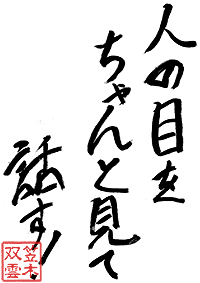 人の目を
ちゃんと見て
話す!
笠木
双雲